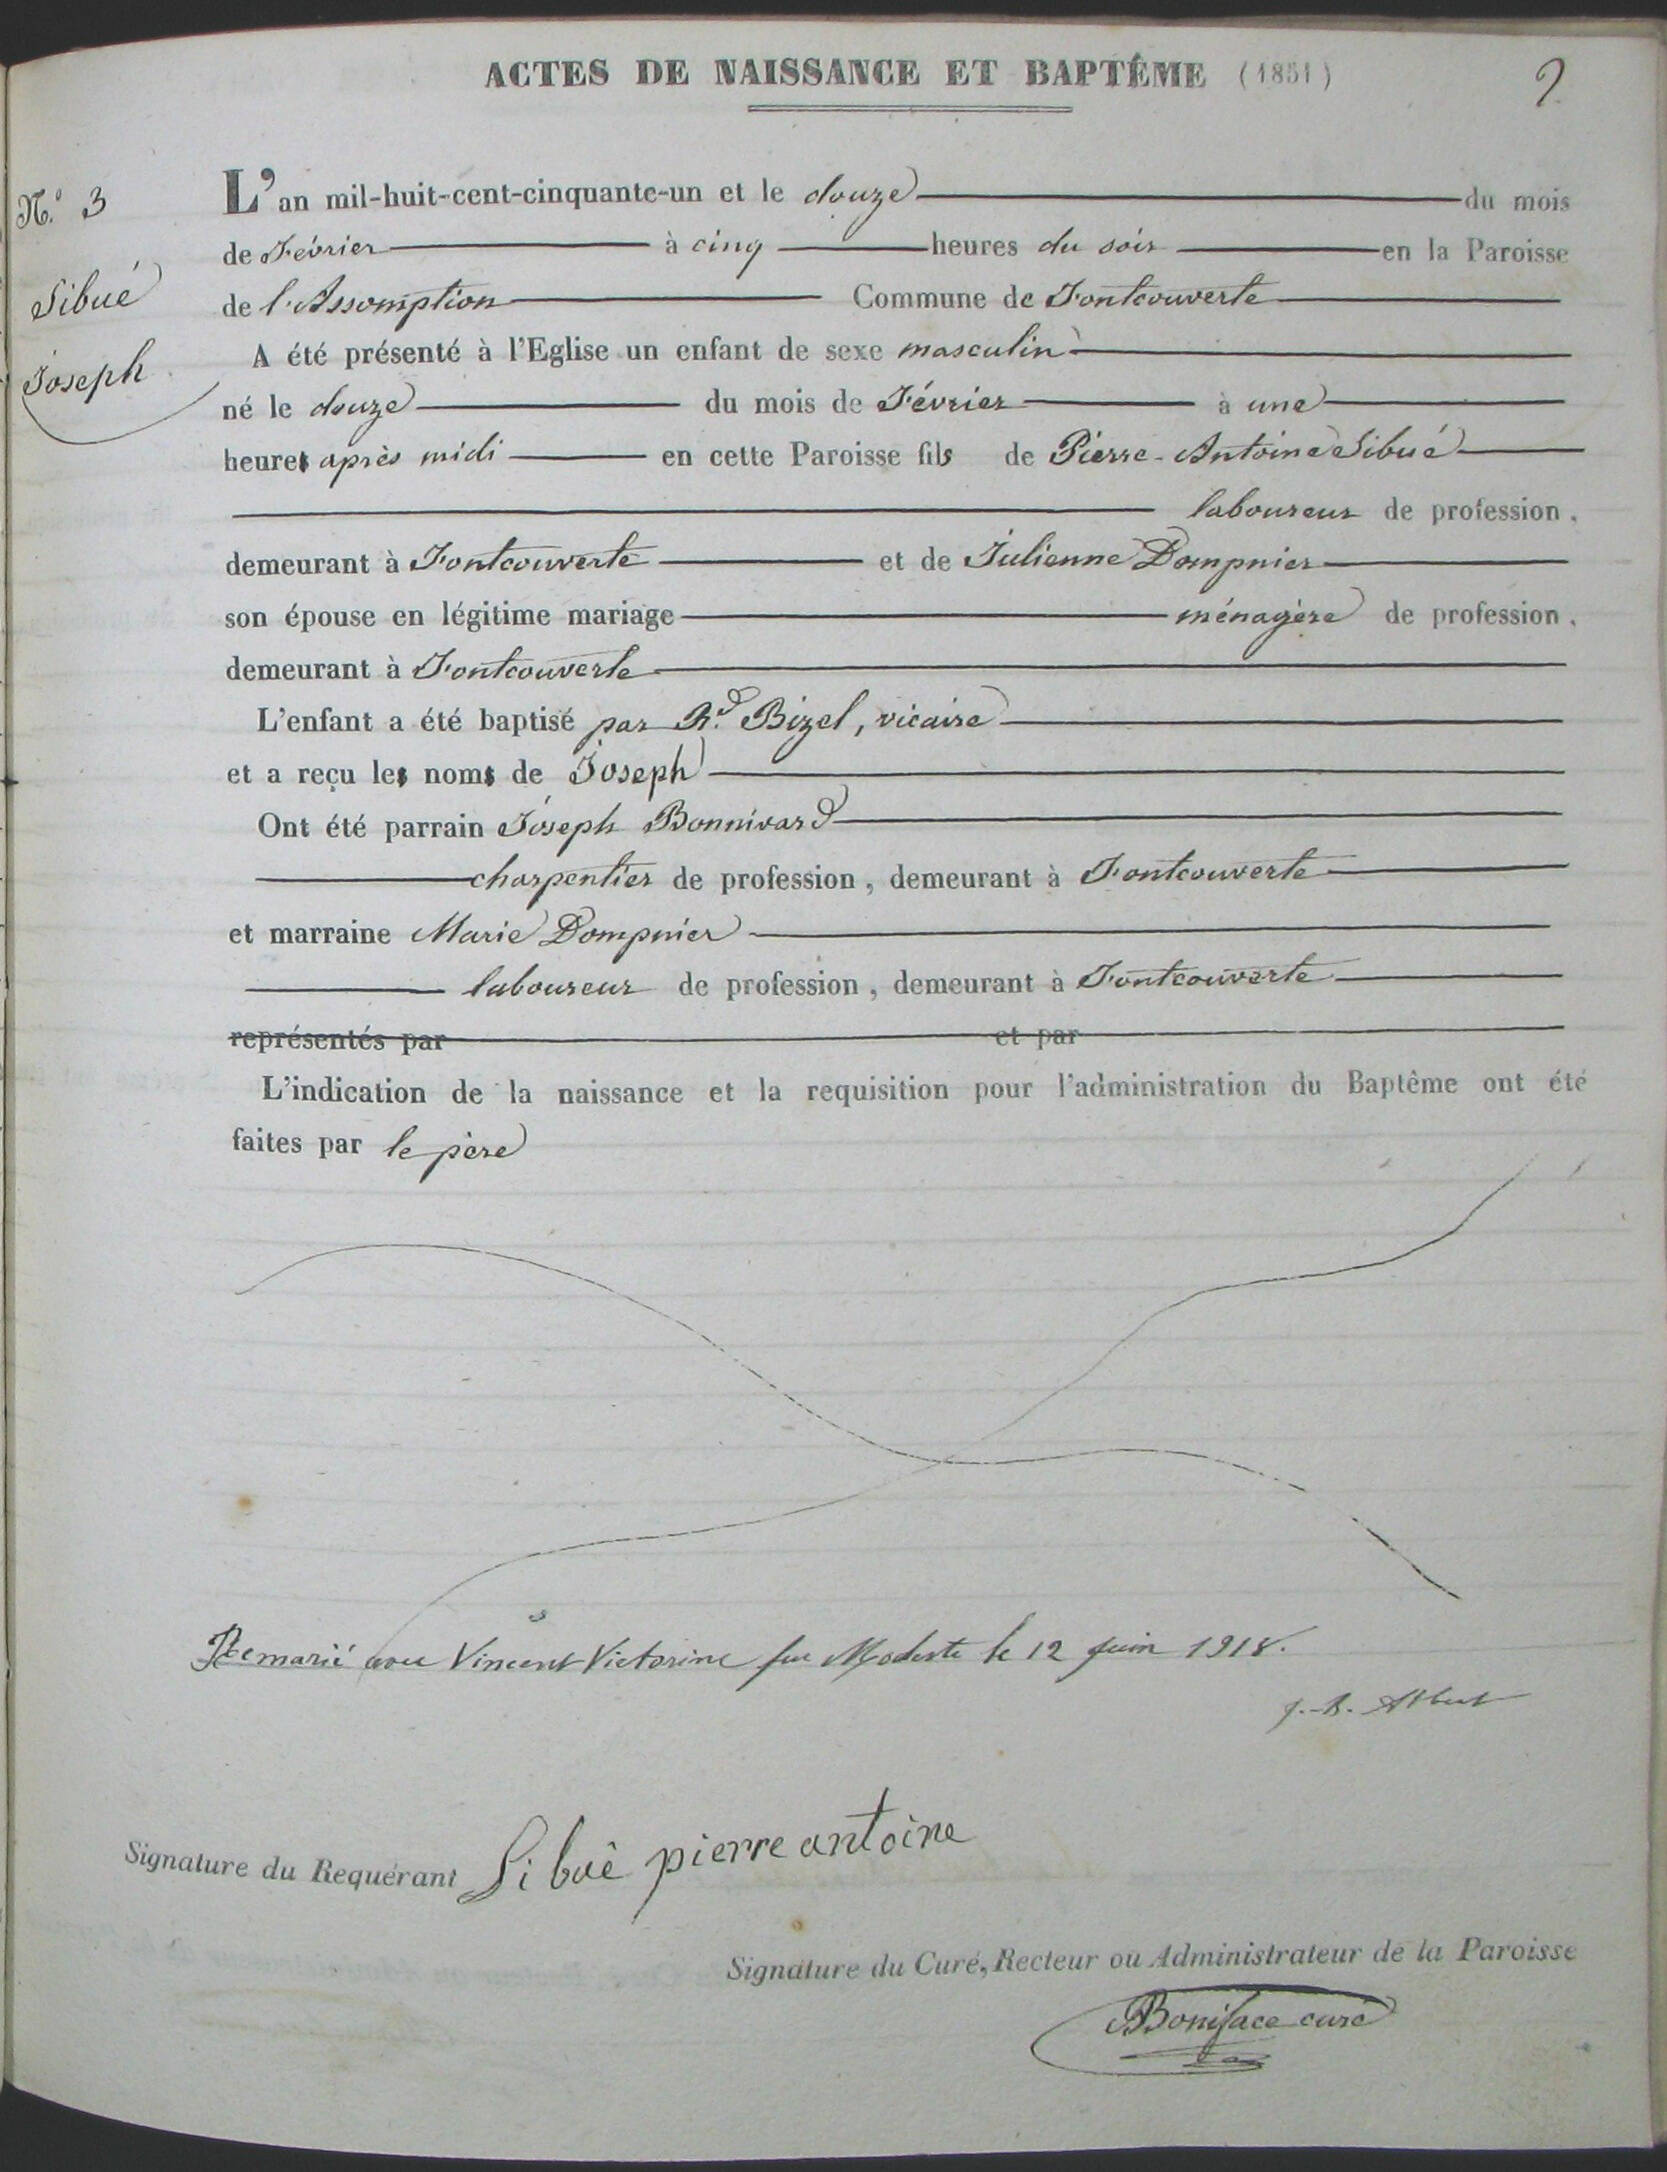 ACTES DE NAISSANCE ET BAPTÊME (1851)
2
N.º 3
Sibué
Joseph
L'an mil-huit-cent-cinquante-un et le douze du mois
de Février à cinq heures du soir en la Paroisse
de l'Assomption Commune de Fontcouverte
A été présenté à l'Eglise un enfant de sexe masculin
né le douze du mois de Février à une
heures après midi en cette Paroisse fils de Pierre-Antoine Sibué
laboureur de profession,
demeurant à Fontcouverte et de Julienne Dompnier
son épouse en légitime mariage ménagère de profession,
demeurant à Fontcouverte
L'enfant a été baptisé par R.d Bizel, vicaire
et a reçu les noms de Joseph
Ont été parrain Joseph Bonnivard
charpentier de profession, demeurant à Fontcouverte
et marraine Marie Dompnier
laboureur de profession, demeurant à Fontcouverte
représentés par et par
L'indication de la naissance et la requisition pour l'administration du Baptême ont été
faites par le père
Remarié avec Vincent Victorine feu Modeste le 12 juin 1918.
J.-B.
Signature du Requérant Sibuê pierre antoine
Signature du Curé, Recteur ou Administrateur de la Paroisse
Boniface curé